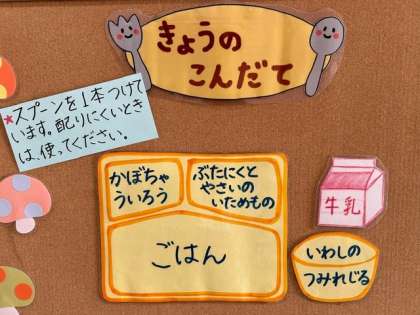 きょうの
こんだて
★スプーンを1本つけて
います。配りにくいとき
は、使ってください。
かぼちゃ
ういろう
ぶたにくと
やさいの
いためもの
ごはん
牛乳
いわしの
つみれじる